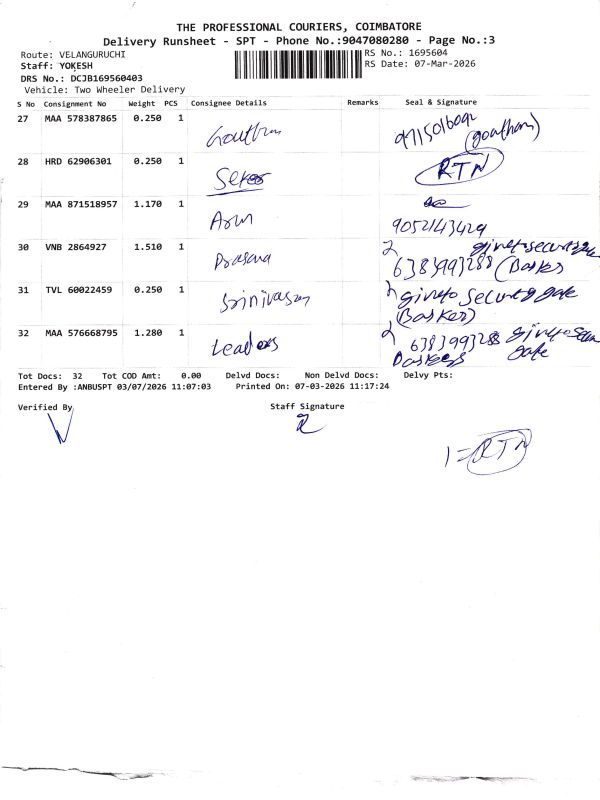 THE PROFESSIONAL COURIERS, COIMBATORE
Delivery Runsheet - SPT - Phone No.:9047080280 - Page No.:3
Route: VELANGURUCHI RS No.: 1695604
Staff: YOKESH RS Date: 07-Mar-2026
DRS No.: DCJB169560403
Vehicle: Two Wheeler Delivery
S No Consignment No Weight PCS Consignee Details Remarks Seal & Signature
27 MAA 578387865 0.250 1 Gouthm (goutham)
28 HRD 62906301 0.250 1 RTN
29 MAA 871518957 1.170 1 Arun 9052143429
30 VNB 2864927 1.510 1 Prasana
6383993288 (Basker)
31 TVL 60022459 0.250 1 Srinivasan give to security gate
(Basker)
32 MAA 576668795 1.280 1 Leaders 6383993288
gate
Tot Docs: 32 Tot COD Amt: 0.00 Delvd Docs: Non Delvd Docs: Delvy Pts:
Entered By :ANBUSPT 03/07/2026 11:07:03 Printed On: 07-03-2026 11:17:24
Verified By Staff Signature
1 = RTN